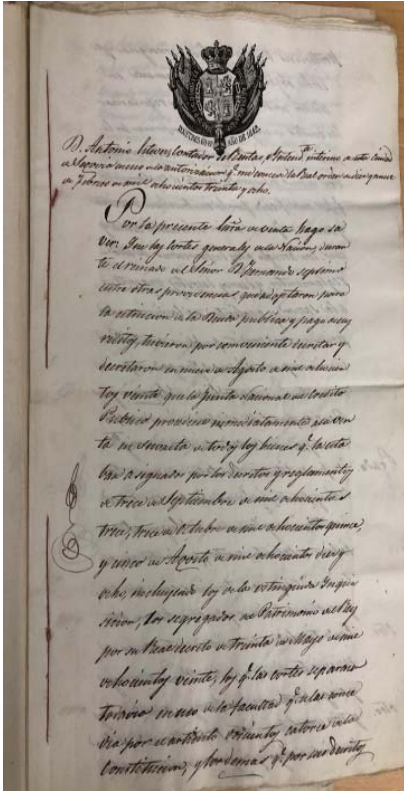 AÑO DE 1842.
D. Antonio Contador de Rentas, Intend.te interino de esta Ciudad
de Segovia en uso de la autorizacion q. me concede la Real orden de diez y nueve
de Febrero de mil ochocientos treinta y ocho.
Por la presente Carta de venta hago sa
ver: Que las Cortes generales de la Nacion, duran
te el reinado del Señor D. Fernando septimo
entre otras providencias que adoptaron para
la estincion de la Deuda publica y pago de sus
reditos, tuvieron por conveniente decretar y
decretaron en nueve de Agosto de mil ochocien
tos veinte que la Junta Nacional del Credito
Publico procediese inmediatamente a la ven
ta en subasta de todos los bienes q. la esta
ban asignados por los decretos y reglamentos
de trece de Septiembre de mil ochocientos
trece, trece de Octubre de mil ochocientos quince,
y cinco de Agosto de mil ochocientos diez y
ocho, incluyendo los de la estinguida Inqui
sicion, los segregados del Patrimonio del Rey
por su Real decreto de treinta de Mayo de mil
ochocientos veinte, los q. las Cortes separaro
en uso de la facultad q. se las conce
dia por el articulo doscientos catorce de la
Constitucion, y los demas q. por sus decretos